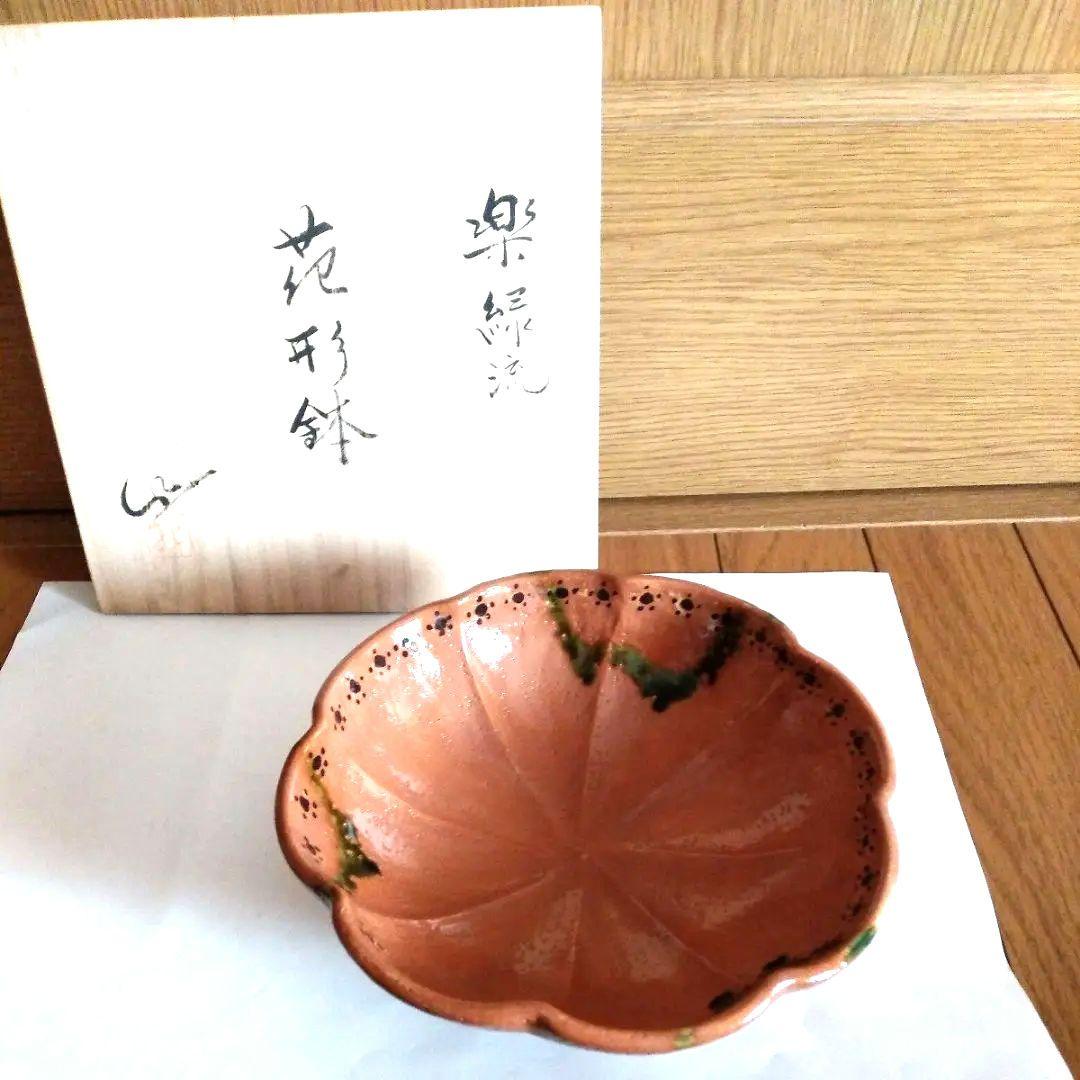 楽緑流
花形鉢